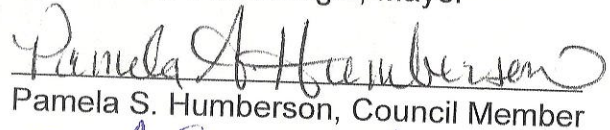 Mayor
Pamela S. Humberson
Pamela S. Humberson, Council Member